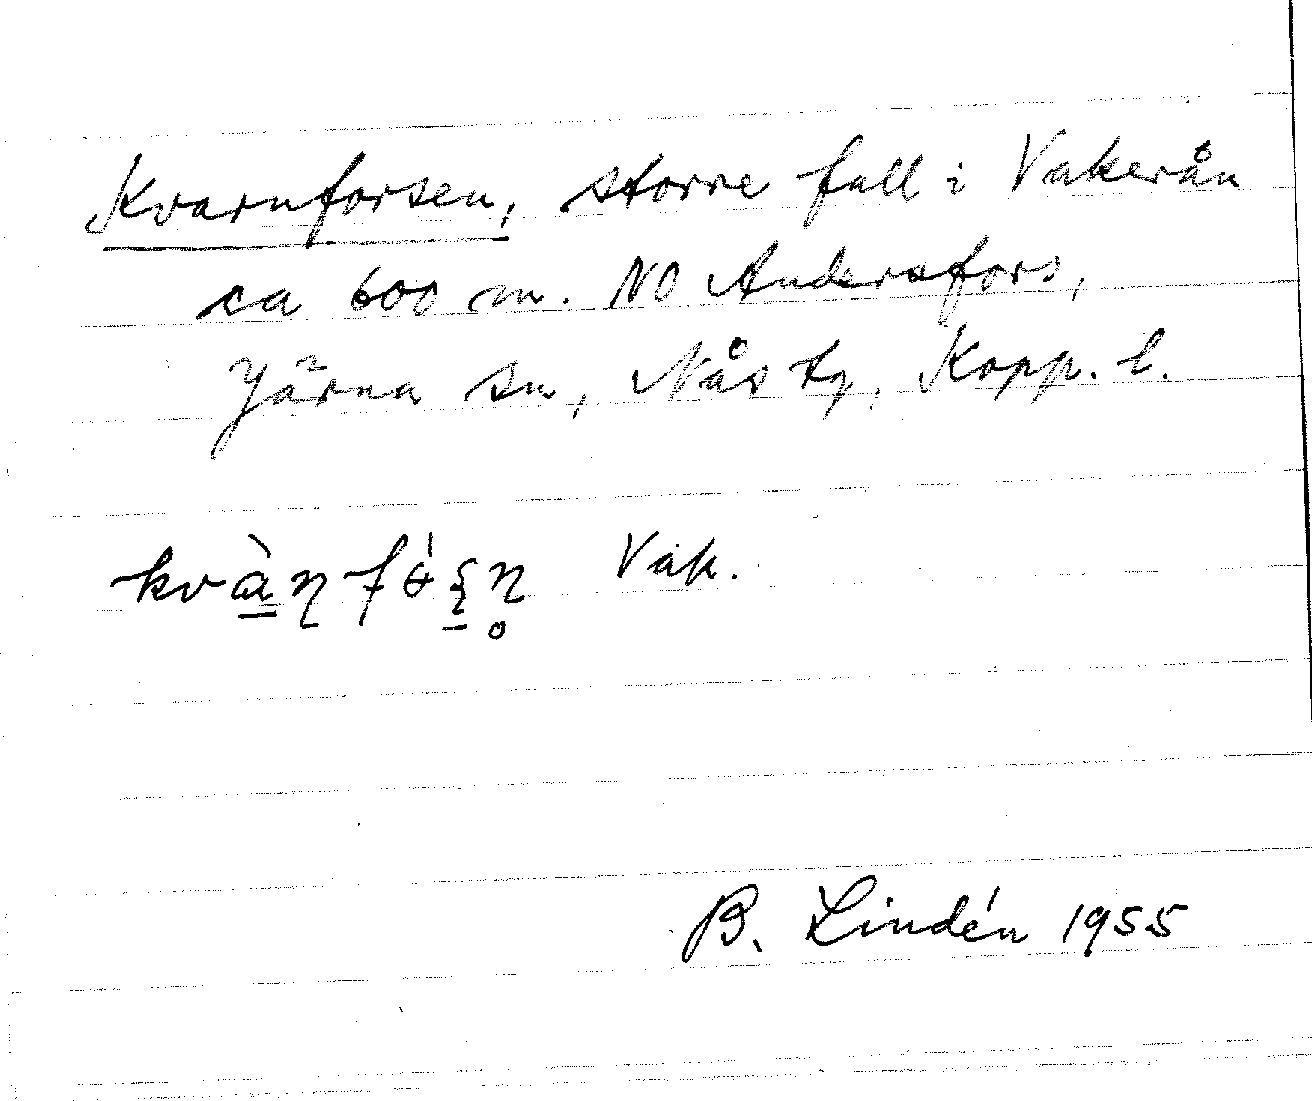 Kvarnforsen, större fall i Vakerån
ca 600 m. NO Andersfors,
Järna sn, Nås tg, Kopp. l.
Vak.
B. Lindén 1955